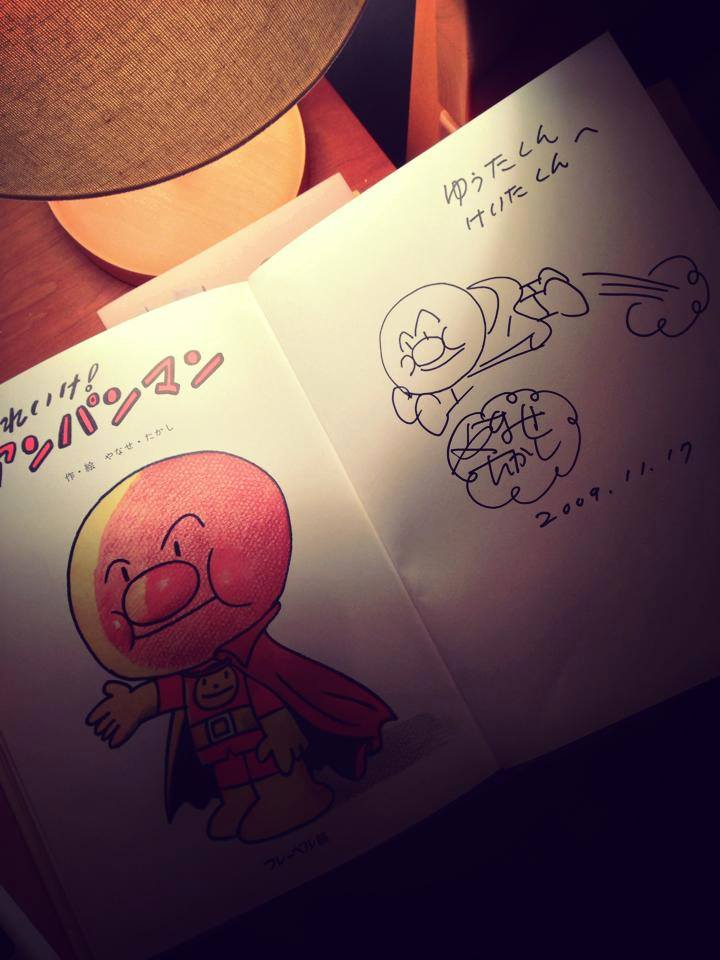 れいけ!
アンパンマン
作・絵 やなせ・たかし
フレーベル館
ゆうたくん
けいたくん へ
やなせ
たかし
2009.11.17